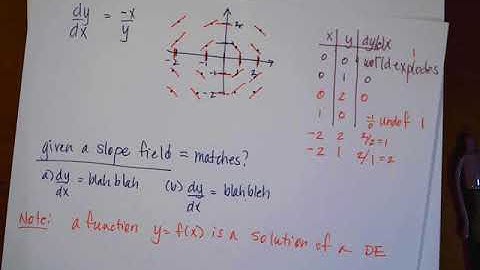 dy/dx = -x/y
2
-2 -1 1 2
-2
x y dy/dx
0 0 world explodes
0 1 0
0 2 0
1 0 -1/0 undef
-2 2 2/2=1
-2 1 2/1=2
given a slope field = matches?
a) dy/dx = blah blah (b) dy/dx = blahbleh
Note: a function y=f(x) is a solution of a DE